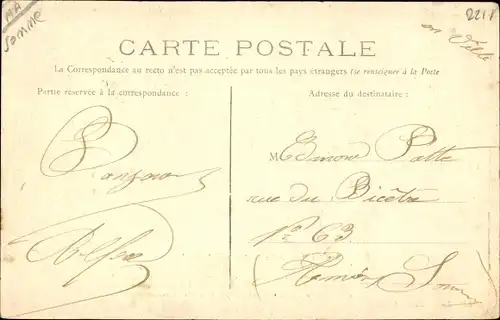 MA
SOMME
2218
en Ville
CARTE POSTALE
La Correspondance au recto n'est pas acceptée par tous les pays étrangers (se renseigner à la Poste
Partie réservée à la correspondance :
Adresse du destinataire :
M Edmond Patte
rue du Bicêtre
Nº 63
Somme